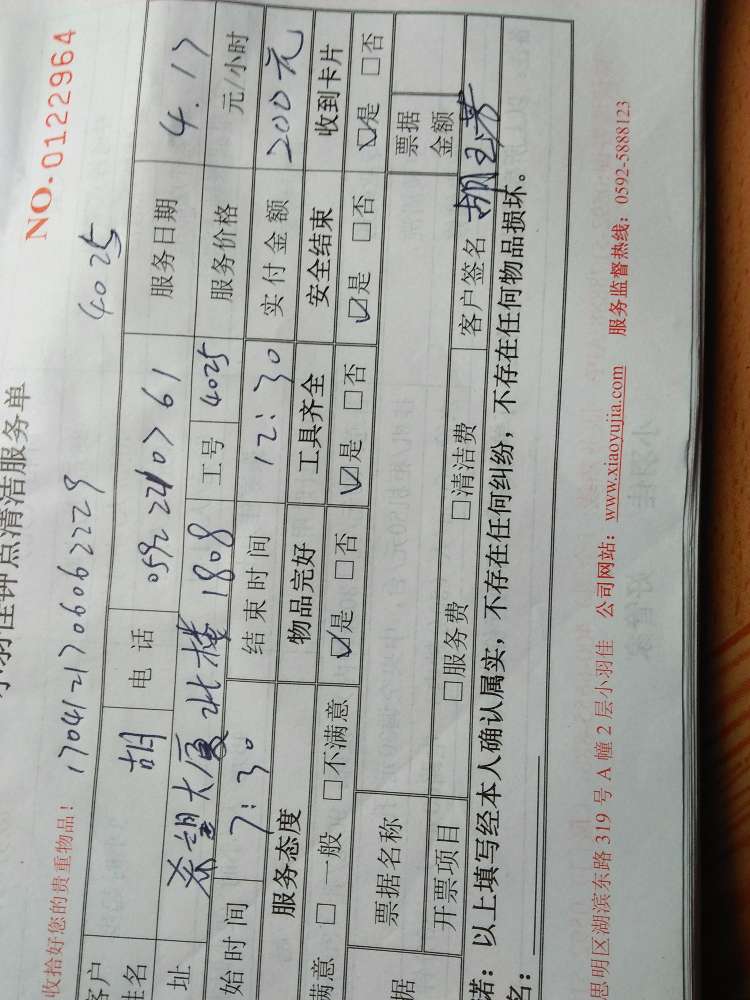 NO.0122964
小羽佳钟点清洁服务单
收拾好您的贵重物品! 1704121706062229 4025
客户姓名 胡 电话 0592 2210761 服务日期 4.17
址 希望大厦北楼1808 工号 4025 服务价格 元/小时
始时间 7:30 结束时间 12:30 实付金额 200元
服务态度 物品完好 工具齐全 安全结束 收到卡片
满意 □一般 □不满意 ☑是 □否 ☑是 □否 ☑是 □否 ☑是 □否
据 票据名称 票据金额
开票项目 □服务费 □清洁费 客户签名
诺:以上填写经本人确认属实,不存在任何纠纷,不存在任何物品损坏。
名:
思明区湖滨东路 319 号 A 幢 2 层小羽佳 公司网站:www.xiaoyujia.com 服务监督热线:0592-5888123